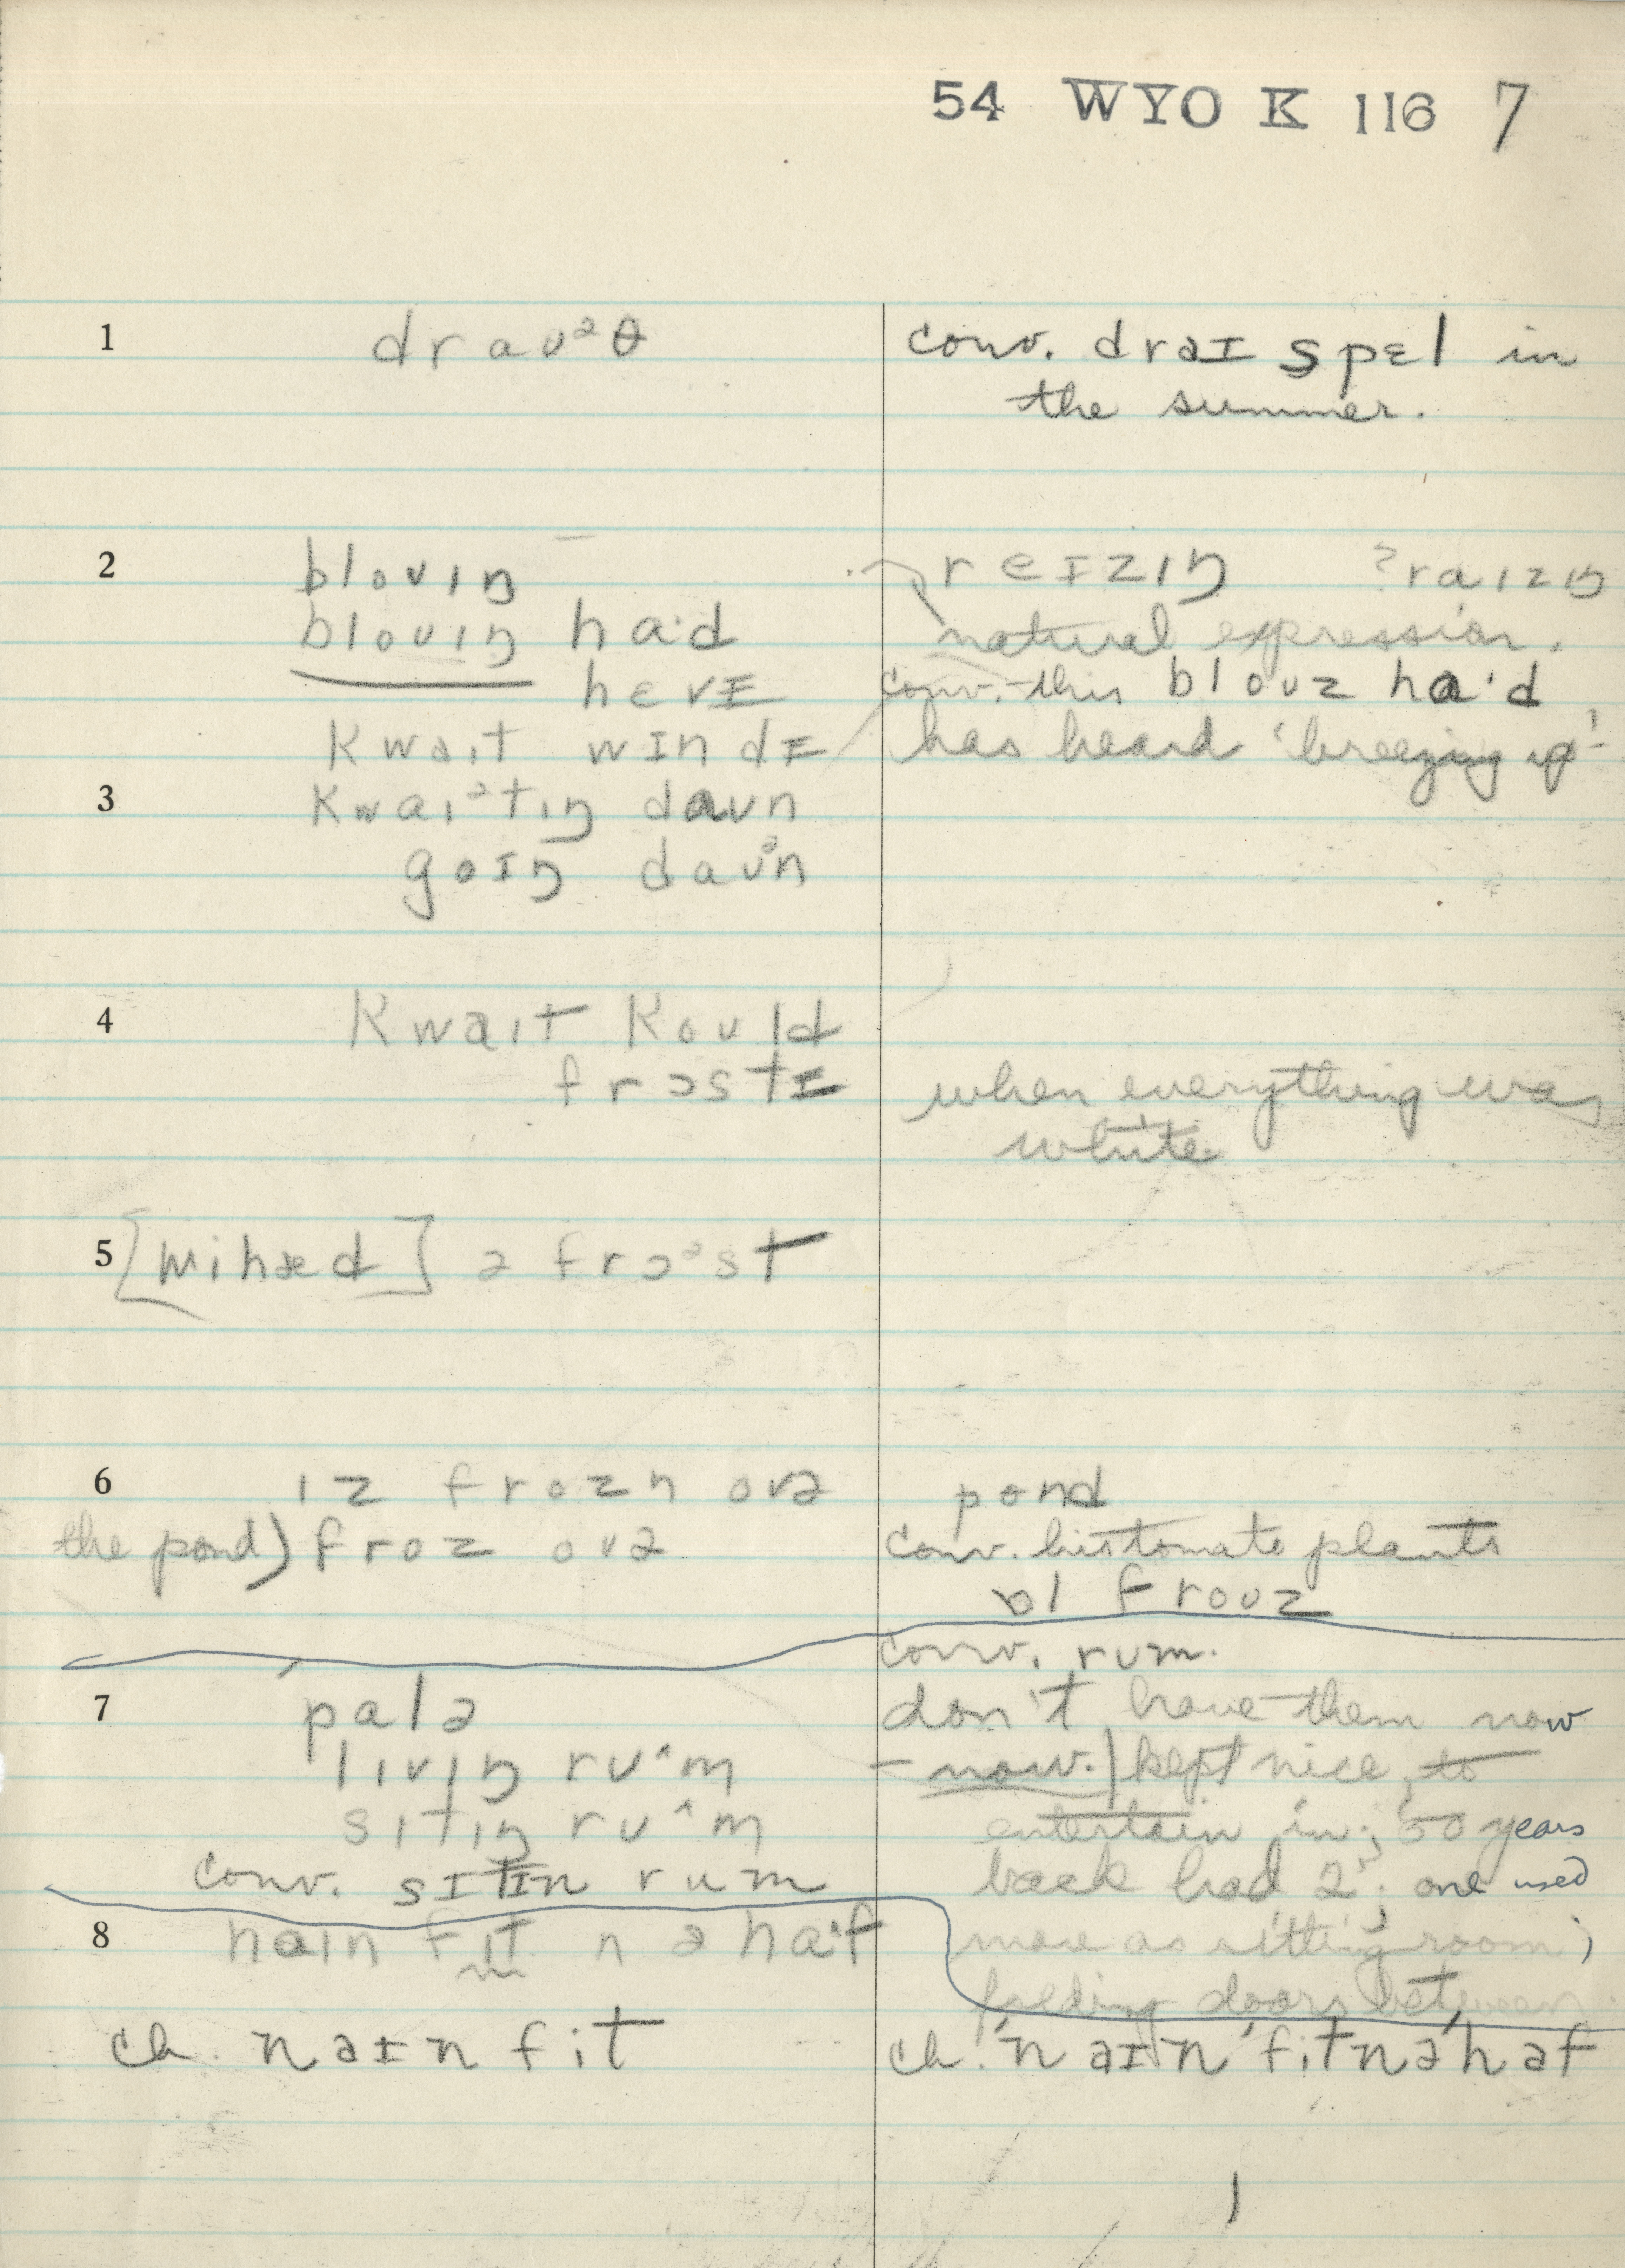 54 WYO K 116 7
1 draʊᵊθ conv. draɪ spɛl in
the summer.
2 bloʊɪŋ reɪzɪŋ ?raɪzɪŋ
bloʊɪŋ ha·d natural expression.
hevɪ conv. this bloʊz ha·d
kwaɪt wɪndɪ has heard 'breezing up'
3 kwaɪᵊtɪŋ daʊn
goɪŋ daʊᵊn
4 kwaɪt koʊld
frɔstɪ when everything was
white
5 [wihæd] ə frɔᵊst
6 ɪz frozn ovə pond
the pond) froz ovə conv. his tomato plants
ɔl froʊz
conv. rum.
7 palə don't have them now
lɪvɪŋ ru^m – now.) kept nice to
sɪtɪŋ ru^m entertain in; 50 years
conv. sɪtɪn rum back had 2; one used
8 naɪn fɪt n ə ha·f more as sitting room;
folding doors between
ch. naɪn fit ch. naɪn fitnəhaf